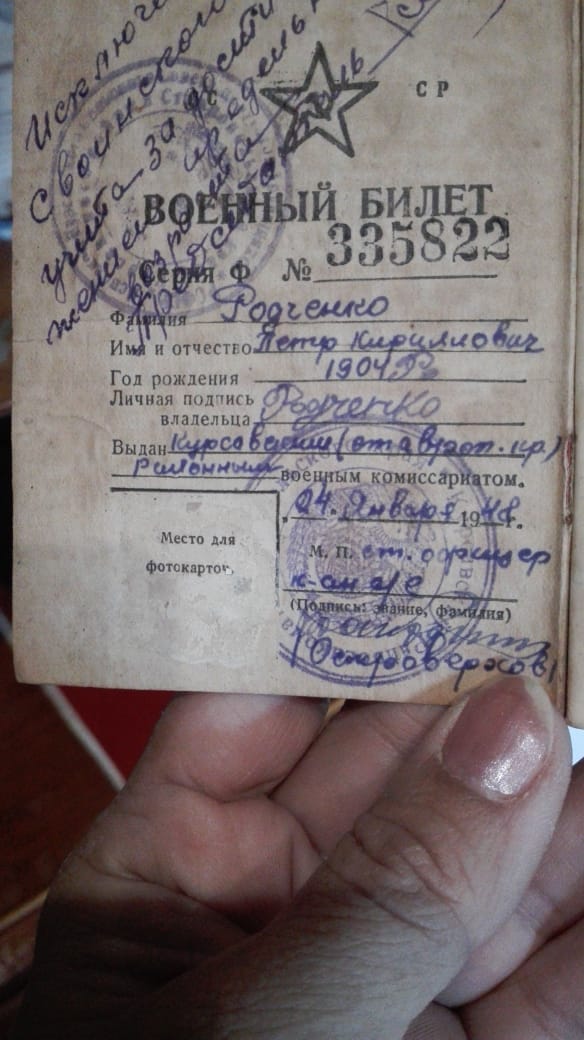 Исключен
с воинского
учета за дости
жением предельн
возраста
СР
ВОЕННЫЙ БИЛЕТ
Серия Ф № 335822
Фамилия Родченко
Имя и отчество Петр Кириллович
Год рождения 1904
Личная подпись
владельца Родченко
Выдан Курсавским (ставроп. кр.)
Районным военным комиссариатом.
"24" Января 1948 г.
Место для
фотокарточ
М. П. ст. офицер
(Подпись: звание, фамилия)
(Староверхов)